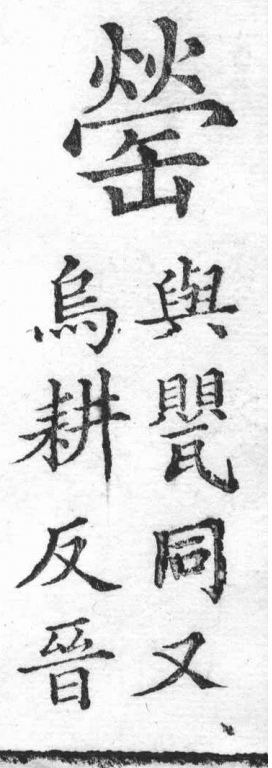 罃
與甖同又
烏耕反晉